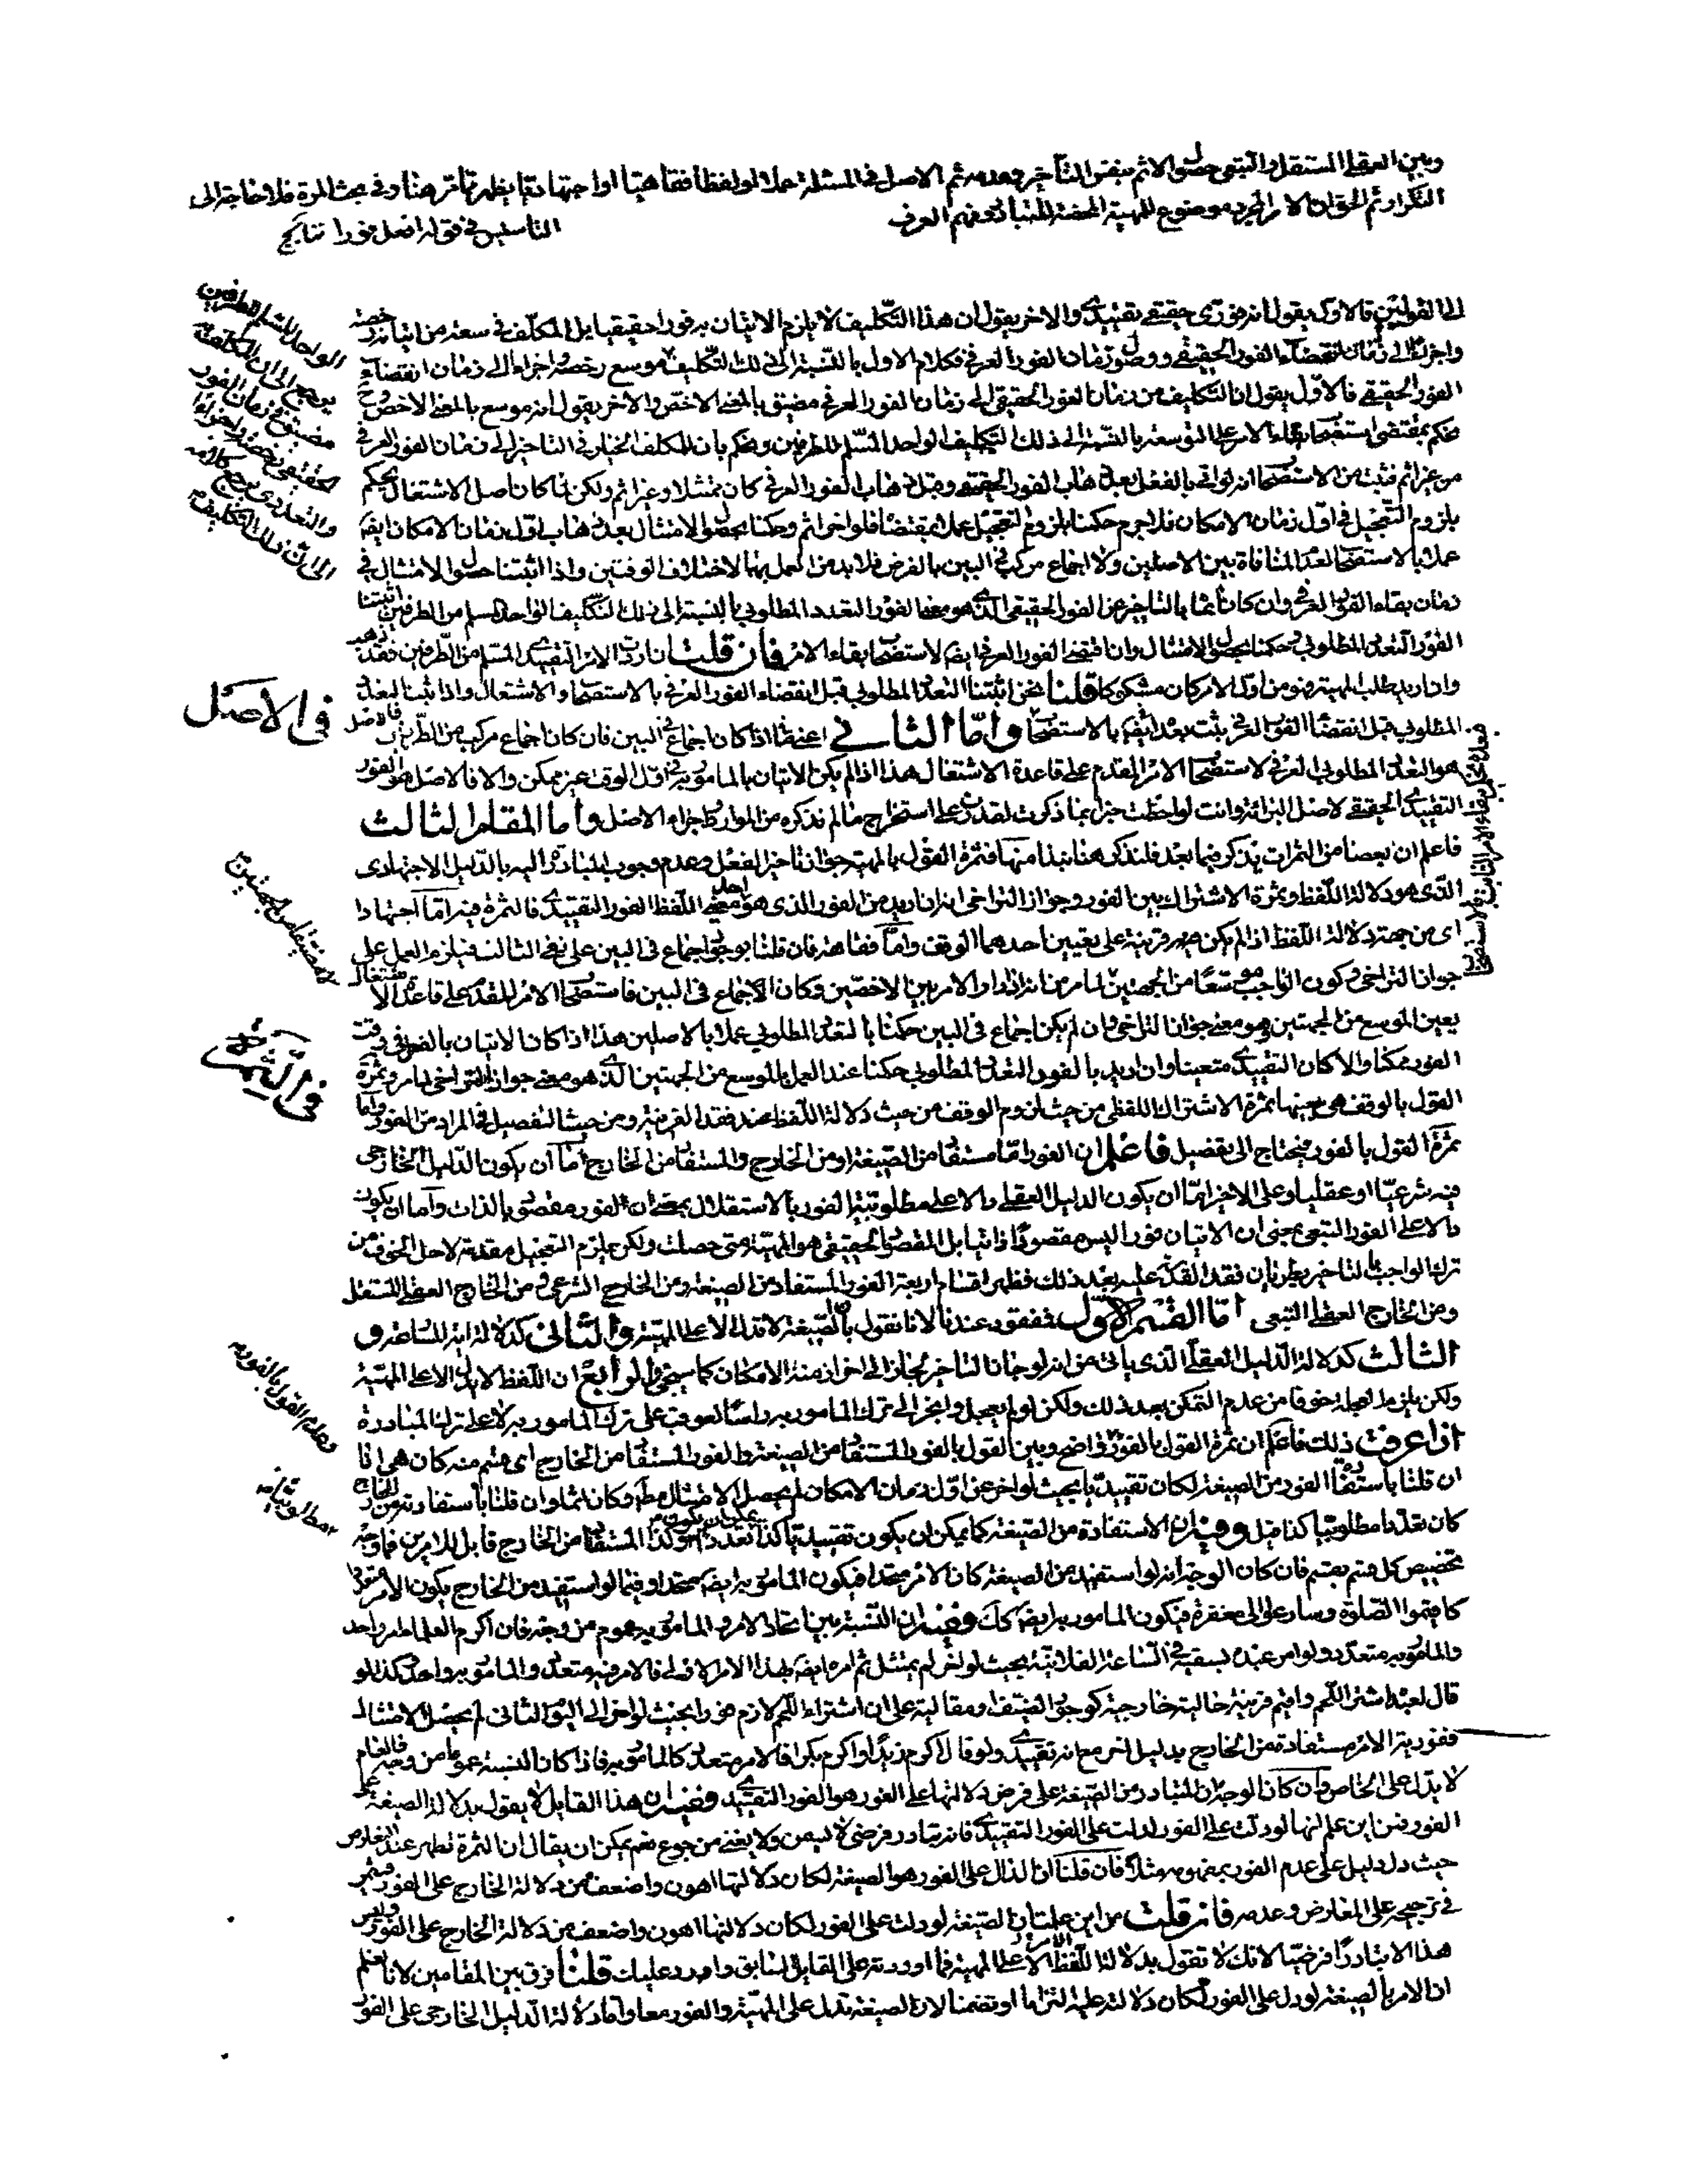 وبين العقلى المستقل والتبعى حصول الاثم بنفس التأخير وعدمه ثم الاصل فى المسئلة عملا ولفظا فقاهتيا او اجتهاديا يظهر مما مر هنا وفى بحث المرة فلا حاجة الى
التكرار ثم الحق ان الامر المجرد موضوع للمهية المحضة للتبادر وفهم العرف
التاسيس فى قوله افعل فورا نتايج
الى القولين فالاول يقول انه فورى حقيقى تقييدى والاخر يقول ان هذا التكليف لا يلزم الاتيان به فورا حقيقيا بل المكلف فى سعة من اتيانه
الفور الحقيقى فالاول يقول ان التكليف من زمان الفور الحقيقى الى زمان الفور العرفى مضيق بالمعنى الاخص والاخر يقول انه موسع بالمعنى الاخص
من غير اثم فثبت من الاستصحاب انه لو اتى بالفعل بعد ذهاب الفور الحقيقى وقبل ذهاب الفور العرفى كان ممتثلا وغير اثم ولكن لما كان اصل الاشتغال يحكم
بلزوم التعجيل فى اول زمان الامكان فلا جرم حكمنا بلزوم التعجيل عملا بمقتضاه فلو اخر اثم وحكمنا بحصول الامتثال بعد ذهاب اول زمان الامكان ايضا
عملا بالاستصحاب لعدم المنافاة بين الاصلين ولا اجماع مركب فى البين بالفرض فلا بد من العمل بهما لاختلاف الوقتين واذا اثبتنا حصول الامتثال فى
زمان بقاء الفور العرفى وان كان اثما بالتاخير عن الفور الحقيقى الذى هو معنى الفور التعددى المطلوبى بالنسبة الى ذلك التكليف الواحد المسلم من الطرفين اثبتنا
الفور التعددى المطلوبى حكمنا بحصول الامتثال وان انقضى الفور العرفى ايضا لاستصحاب بقاء الامر فان قلت ان اريد الامر التقييدى المسلم من الطرفين فقد ذهب
وان اريد طلب المهية فهو من اول الامر كان مشكوكا قلنا نحن اثبتنا التعدد المطلوبى قبل انقضاء الفور العرفى بالاستصحاب والاشتغال واذا ثبت التعدد
فى الاصل
المطلوبى قبل انقضاء الفور العرفى يثبت بعده ايضا بالاستصحاب واما الثانى اعنى ما اذا كان اجماع فى البين فان كان اجماع مركب من الطرفين فالاصل
هو التعدد المطلوبى العرفى لاستصحاب الامر المقدم على قاعدة الاشتغال هذا اذا لم يكن الاتيان بالمامور به فى اول الوقت غير ممكن والا فالاصل هو الفور
التقييدى الحقيقى لاصل البرائة وانت لو احطت خبرا بما ذكرت لقدرت على استخراج ما لم نذكره من الموارد لاجراء الاصل واما المقام الثالث
فاعلم ان بعضا من الثمرات يذكر فيما بعد فلنذكر هنا نبذا منها فثمرة القول بالمهية جواز تاخير الفعل وعدم وجوب المبادرة اليه بالدليل الاجتهادى
الذى هو دلالة اللفظ وثمرة الاشتراك بين الفور وجواز التراخى انه ان اريد من الفور الذى هو احد معنى اللفظ الفور التقييدى فالثمرة فيه اما اجتهادا
اى من جهة دلالة اللفظ اذا لم يكن معه قرينة على تعيين احدهما الوقف واما فقاهة فان قلنا بوجود اجماع فى البين على نفى الثالث فيلزم العمل على
جواز التراخى وكون الواجب موسعا من الجهتين لما مر من انه اذا دار الامر بين الاخصين وكان الاجماع فى البين فاستصحاب الامر المقدم على قاعدة الاشتغال
يعين الموسع من الجهتين وهو معنى جواز التراخى وان لم يكن اجماع فى البين حكمنا بالتعدد المطلوبى عملا بالاصلين هذا اذا كان الاتيان بالفور فى وقت
الفور ممكنا والا كان التقييدى متعينا وان اريد بالفور التعدد المطلوبى حكمنا عند العمل بالموسع من الجهتين الذى هو معنى جواز التراخى لما مر وثمرة
فى الثمرة
القول بالوقف هى بعينها ثمرة الاشتراك اللفظى من حيث لزوم الوقف من حيث دلالة اللفظ عند فقد القرينة ومن حيث التفصيل فى المراد من الفور واما
ثمرة القول بالفور فيحتاج الى تفصيل فاعلم ان الفور اما مستفاد من الصيغة او من الخارج والمستفاد من الخارج اما ان يكون الدليل الخارجى
فيه شرعيا او عقليا وعلى الاخير اما ان يكون الدليل العقلى دالا على مطلوبية الفور بالاستقلال بمعنى ان الفور مقصود بالذات واما ان يكون
دالا على الفور التبعى بمعنى ان الاتيان فورا ليس مقصودا ذاتيا بل المقصود الحقيقى هو المهية متى حصلت ولكن يلزم التعجيل مقدمة لاجل الخوف من
ترك الواجب بالتاخير بطريان فقد القدرة عليه بعد ذلك فظهر اقسام اربعة الفور المستفاد من الصيغة ومن الخارج الشرعى ومن الخارج العقلى المستقل
ومن الخارج العقلى التبعى اما القسم الاول فمفقود عندنا لانا نقول بان الصيغة لا تدل الا على المهية والثانى كدلالة اية المسارعة و
الثالث كدلالة الدليل العقلى الذى ياتى من انه لو جاز التاخير لجاز الى اخر ازمنة الامكان كما سيجئ والرابع ان اللفظ لا يدل الا على المهية
ولكن يلزم التعجيل خوفا من عدم التمكن بعد ذلك ولكن لو لم يعجل وانجر الى ترك المامور به راسا لعوقب على ترك المامور به لا على ترك المبادرة
اذا عرفت ذلك فاعلم ان ثمرة القول بالفور واضح وبين القول بالفور المستفاد من الصيغة والفور المستفاد من الخارج اى قسم منه كان هى انا
وعدم القول بالفور
ان قلنا باستفادة الفور من الصيغة لكان تقييديا بحيث لو اخر عن اول زمان الامكان لم يحصل الامتثال مطلقا وكان اثما وان قلنا باستفادته من الخارج
كان تعدديا مطلوبيا كذا قيل وفيه ان الاستفادة من الصيغة كما يمكن ان يكون تقييديا كذا يمكن ان يكون تعدديا وكذا المستفاد من الخارج قابل للامرين فما وجه
مطلوبيا
تخصيص كل قسم بقسم فان كان الوجه انه لو استفيد من الصيغة كان الامر متحدا فيكون المامور به ايضا متحدا وفيما لو استفيد من الخارج يكون الامر متعددا
كاقيموا الصلوة وسارعوا الى مغفرة فيكون المامور به ايضا كك وفيه ان النسبة بين اتحاد الامر والمامور به عموم من وجه فان اكرم العلماء امر واحد
والمامور به متعدد ولو امر عبده بسقيه فى الساعة الفلانية بحيث لو اخر لم يمتثل ثم امره ايضا بهذا الامر الاول فالامر فيه متعدد والمامور به واحد وكذا لو
قال لعبده اشتر اللحم واقيم قرينة حالية خارجية كوجود الضيف ومقالية على ان اشتراء اللحم لازم فورا بحيث لو اخر الى اليوم الثانى لم يحصل الامتثال
ففورية الامر مستفادة من الخارج بدليل اخر مع انه تقييدى ولو قال اكرم زيدا واكرم بكرا فالامر متعدد كالمامور به فاذا كان النسبة عموما من وجه فالعام
لا يدل على الخاص وان كان الوجه ان المتبادر من الصيغة على فرض دلالتها على الفور هو الفور التقييدى وفيه ان هذا القايل لا يقول بدلالة الصيغة على
الفور فمن اين علم انها لو دلت على الفور لدلت على الفور التقييدى فانه تبادر فرضى لا يسمن ولا يغنى من جوع نعم يمكن ان يقال ان الثمرة تظهر عند التعارض
حيث دل دليل على عدم الفور بمفهومه مثلا فان قلنا ان الدال على الفور هو الصيغة لكان دلالتها اهون واضعف من دلالة الخارج على الفور فيثمر
فى ترجيحه على المعارض وعدمه فان قلت من اين علمت ان الصيغة لو دلت على الفور لكان دلالتها اهون واضعف من دلالة الخارج على الفور وليس
هذا الا تبادرا فرضيا لانك لا تقول بدلالة لفظ الامر الا على المهية فما اوردته على القايل السابق وارد عليك قلنا فرق بين المقامين لانا نعلم
ان الامر بالصيغة لو دل على الفور لكان دلالته عليه التزاما او تضمنا لان الصيغة تدل على المهية والفور معا واما دلالة الدليل الخارجى على الفور